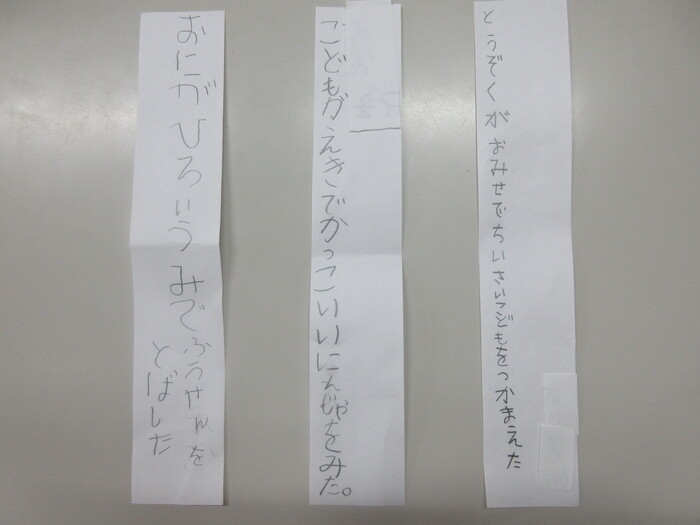 とうぞくがおみせでちいさいこどもをつかまえた
こどもがえきでかっこいいにんじゃをみた。
おにがひろいうみでふうせんを
とばした